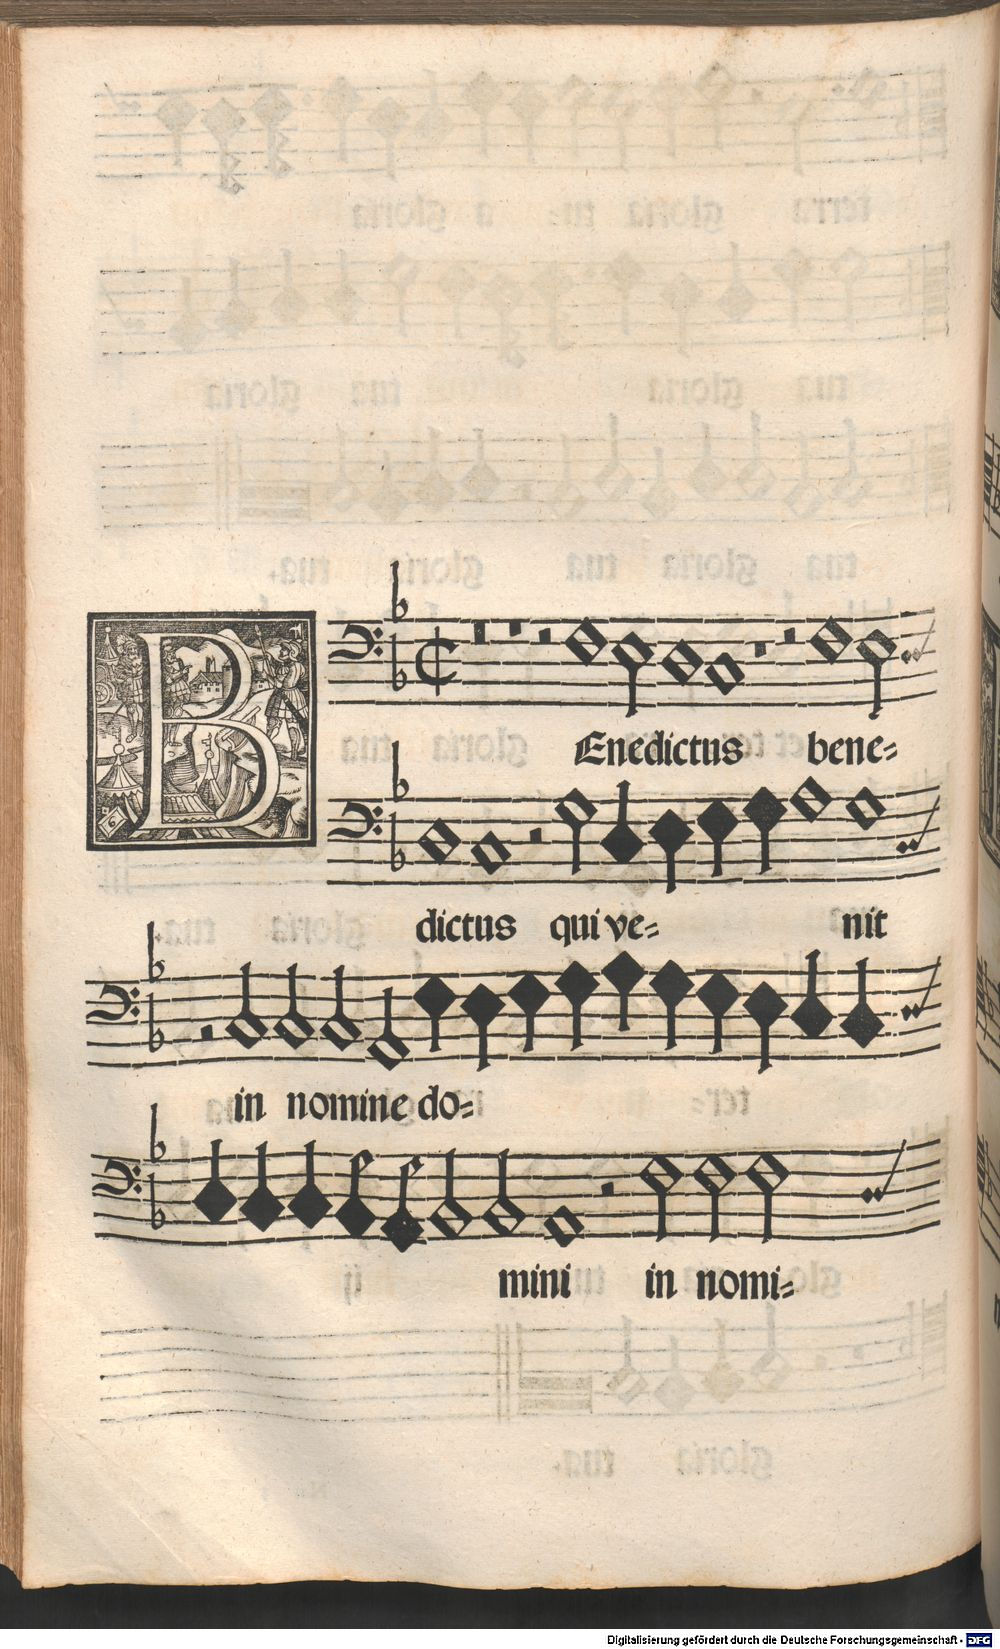 BEnedictus bene=
dictus qui ve= nit
in nomine do=
mini in nomi=
Digitalisierung gefördert durch die Deutsche Forschungsgemeinschaft - DFG